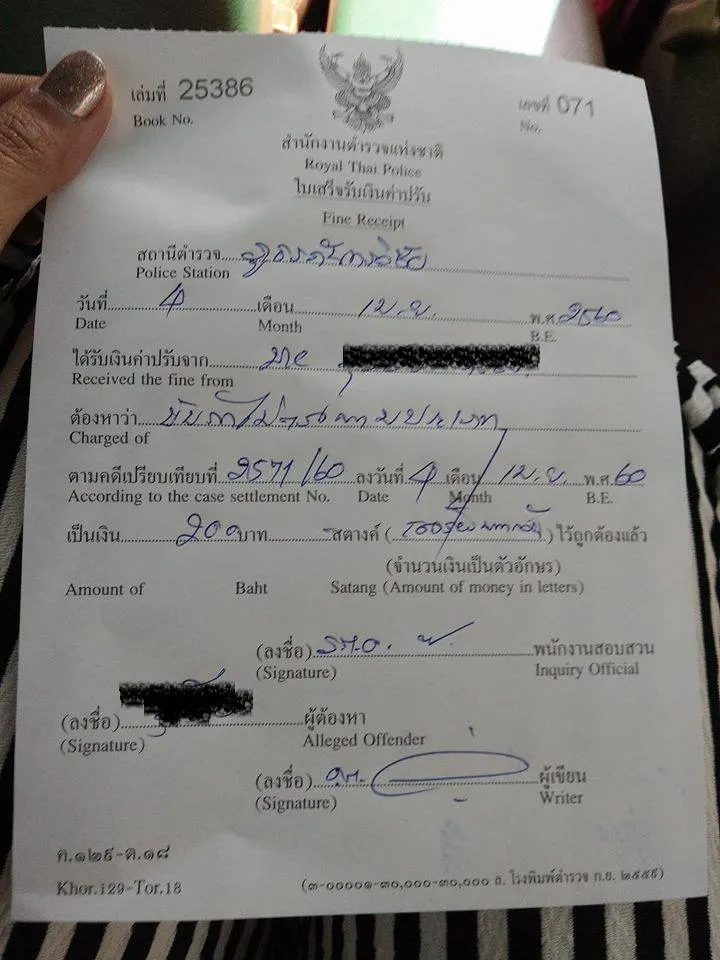 เล่มที่ 25386 เลขที่ 071
Book No. No.
สำนักงานตำรวจแห่งชาติ
Royal Thai Police
ใบเสร็จรับเงินค่าปรับ
Fine Receipt
สถานีตำรวจ
Police Station
วันที่ 4 เดือน เม.ย. พ.ศ. 2560
Date Month B.E.
ได้รับเงินค่าปรับจาก นาย
Received the fine from
ต้องหาว่า ขับรถไม่ตรงตามประเภท
Charged of
ตามคดีเปรียบเทียบที่ 2571/60 ลงวันที่ 4 เดือน เม.ย. พ.ศ. 60
According to the case settlement No. Date Month B.E.
เป็นเงิน 200 บาท - สตางค์ (สองร้อยบาทถ้วน) ไว้ถูกต้องแล้ว
(จำนวนเงินเป็นตัวอักษร)
Amount of Baht Satang (Amount of money in letters)
(ลงชื่อ) พนักงานสอบสวน
(Signature) Inquiry Official
(ลงชื่อ) ผู้ต้องหา
(Signature) Alleged Offender
(ลงชื่อ) ผู้เขียน
(Signature) Writer
ค.๑๒๙-ต.๑๘
Khor.129-Tor.18 (๓-๐๐๐๐๑-๓๐,๐๐๐-๓๐,๐๐๐ ล. โรงพิมพ์ตำรวจ ก.ย. ๒๕๕๙)